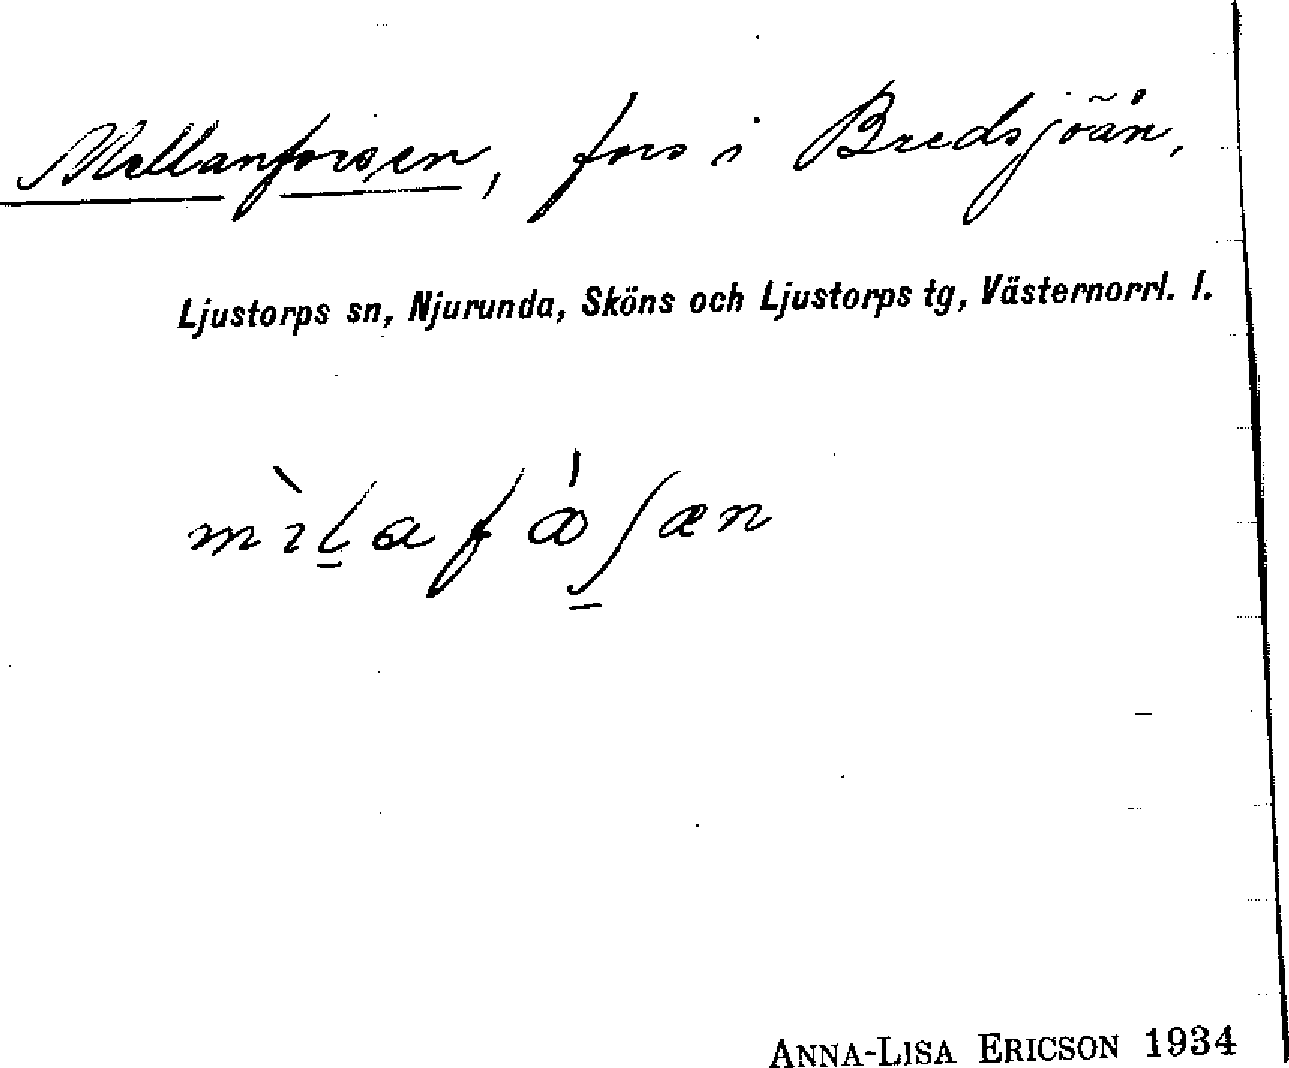 Mellanforsen, fors i Bredsjöån,
Ljustorps sn, Njurunda, Sköns och Ljustorps tg, Västernorrl. l.
mɪ̀l̠afɷ́ʃ̠æn
ANNA-LISA ERICSON 1934